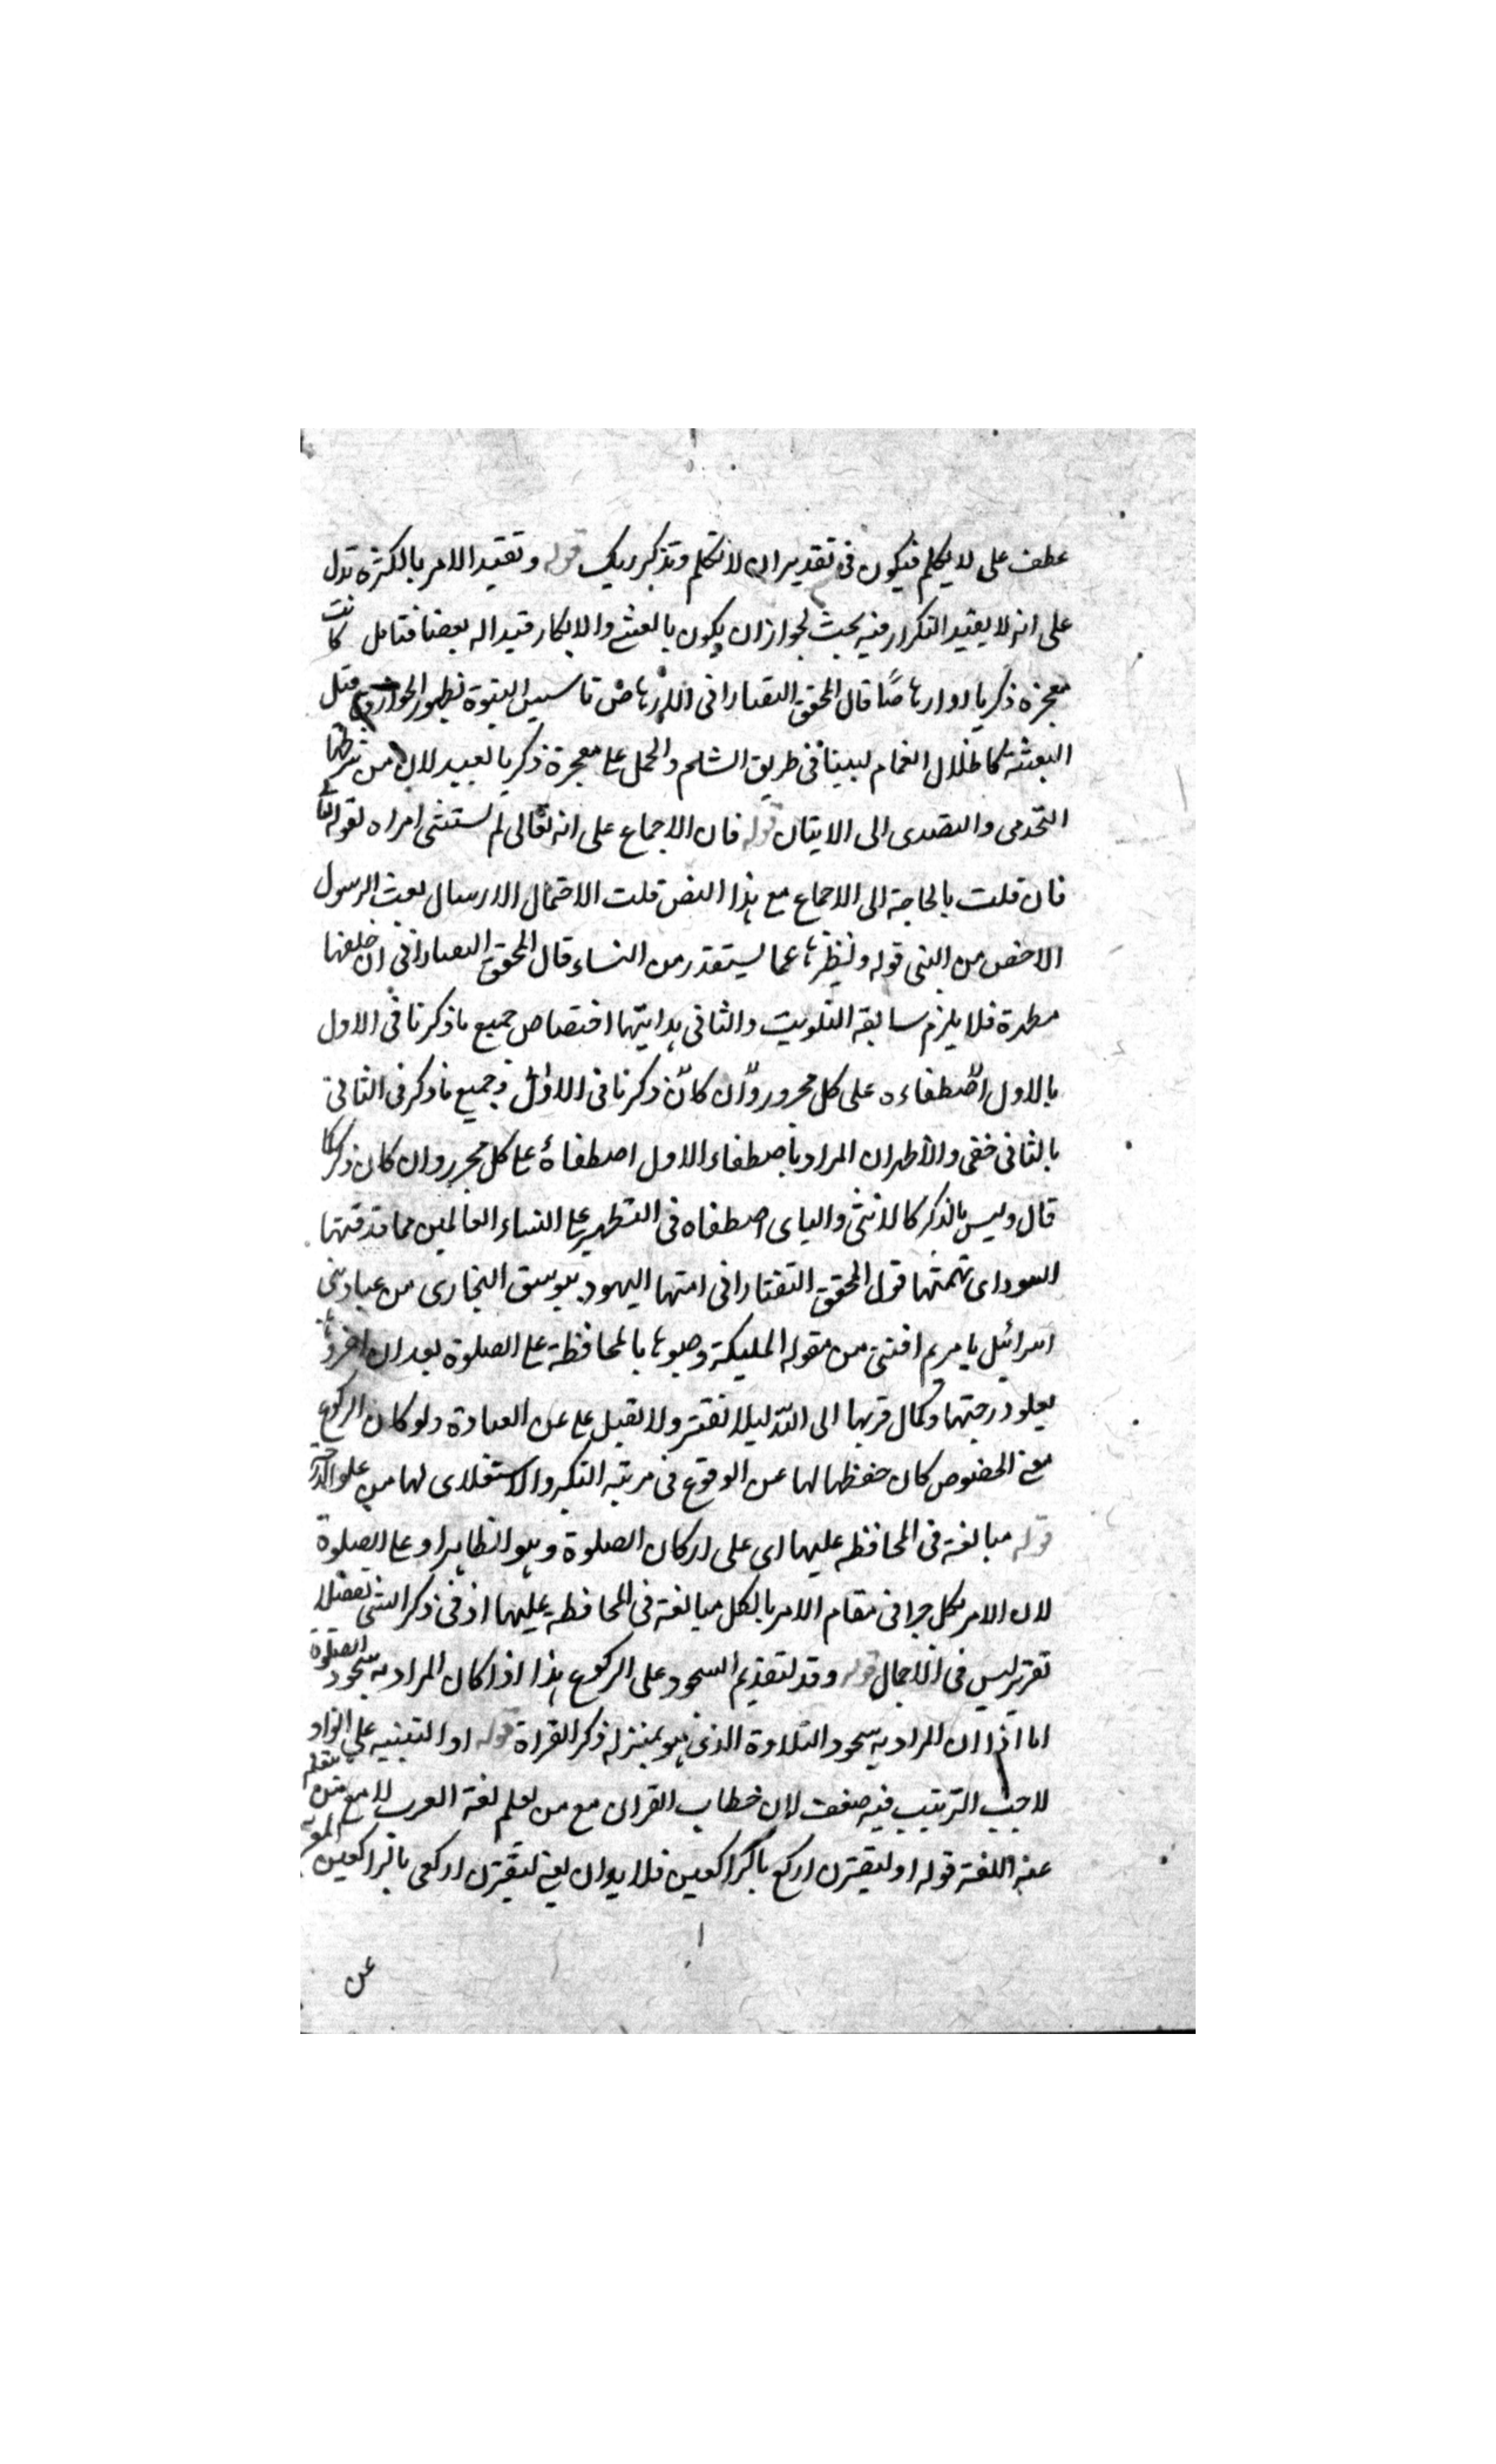 عطف على لا يكلم فيكون في تقدير ان لا تكلم وتذكر ربك قوله وتقييد الامر بالكثرة تدل
على انه لا يفيد التكرار فيه بحث لجواز ان يكون بالعشي والابكار قيد اله بعضنا فتامل كانت
معجزه ذكريا او ارهاصًا قال المحقق التفتازانى الارهاص تاسيس النبوة بظهور الخوارق قبل
البعثة كاظلال الغمام لبينا في طريق الشام والحمل على معجزة ذكريا لعبيد لان من شرطها
التحدى والتصدى الى الاتيان قوله فان الاجماع على انه تعالى لم يستنثى امراه لقوله تعا
فان قلت بالحاجة الى الاجماع مع هذا النص قلت الاحتمال الارسال بعث الرسول
الاخص من النبي قوله وتطهرها عما يستقذر من النساء قال المحقق التفتازانى ان خلقها
مطهرة فلا يلزم سابقة التلويث والثانى هدايتها اختصاص جميع ما ذكرنا في الاول
بالاول اصطفاءه على كل محرر وان كان ذكرنا فى الاول وجميع ما ذكر فى الثانى
بالثانى خفى والاظهر ان المراد باصطفاء الاول اصطفاؤه على كل محرر وان كان ذكرا كما
قال وليس الذكر كالانثى والباى اصطفاه فى التطهير على النساء العالمين مما قذفتها
اليهود اى تهمتها قول المحقق التفتازانى اتهمها اليهود بيوسف النجارى من عباد بنى
اسرائيل يا مريم اقنتى من مقوله المليكة وصوها بالمحافظة على الصلوة بعد ان اخبروها
بعلو درجتها وكمال قربها الى الله ليلا تفتر ولا تغفل على عن العبادة ولو كان الركوع
مع الخضوع كان حفظها لها عن الوقوع فى مرتبة التكبر والاستعلاى لها من علو الدرجة
قوله مبالغة فى المحافظه عليها اى على اركان الصلوة وهو الظاهر او على الصلوة
لان الامر بكل جزا فى مقام الامر بالكل مبالغة فى المحافظة عليها اذ فى ذكر الشى تفصيلا
تقرير ليس فى الاجمال قوله وقد لتقديم السجود على الركوع هذا اذا كان المراد به سجود الصلوة
اما اذا ان المراد به سجود التلاوة الذى هو بمنزله ذكر القراة قوله او التنبيه على ان الواو
لا جب الترتيب فيه ضعف لان خطاب القران مع من يعلم لغة العرب لا مع من يتعلم
عنه اللغة قوله او ليقترن اركع بالراكعين فلا يد ان يعنى ليقترن اركعى بالراكعين
عن